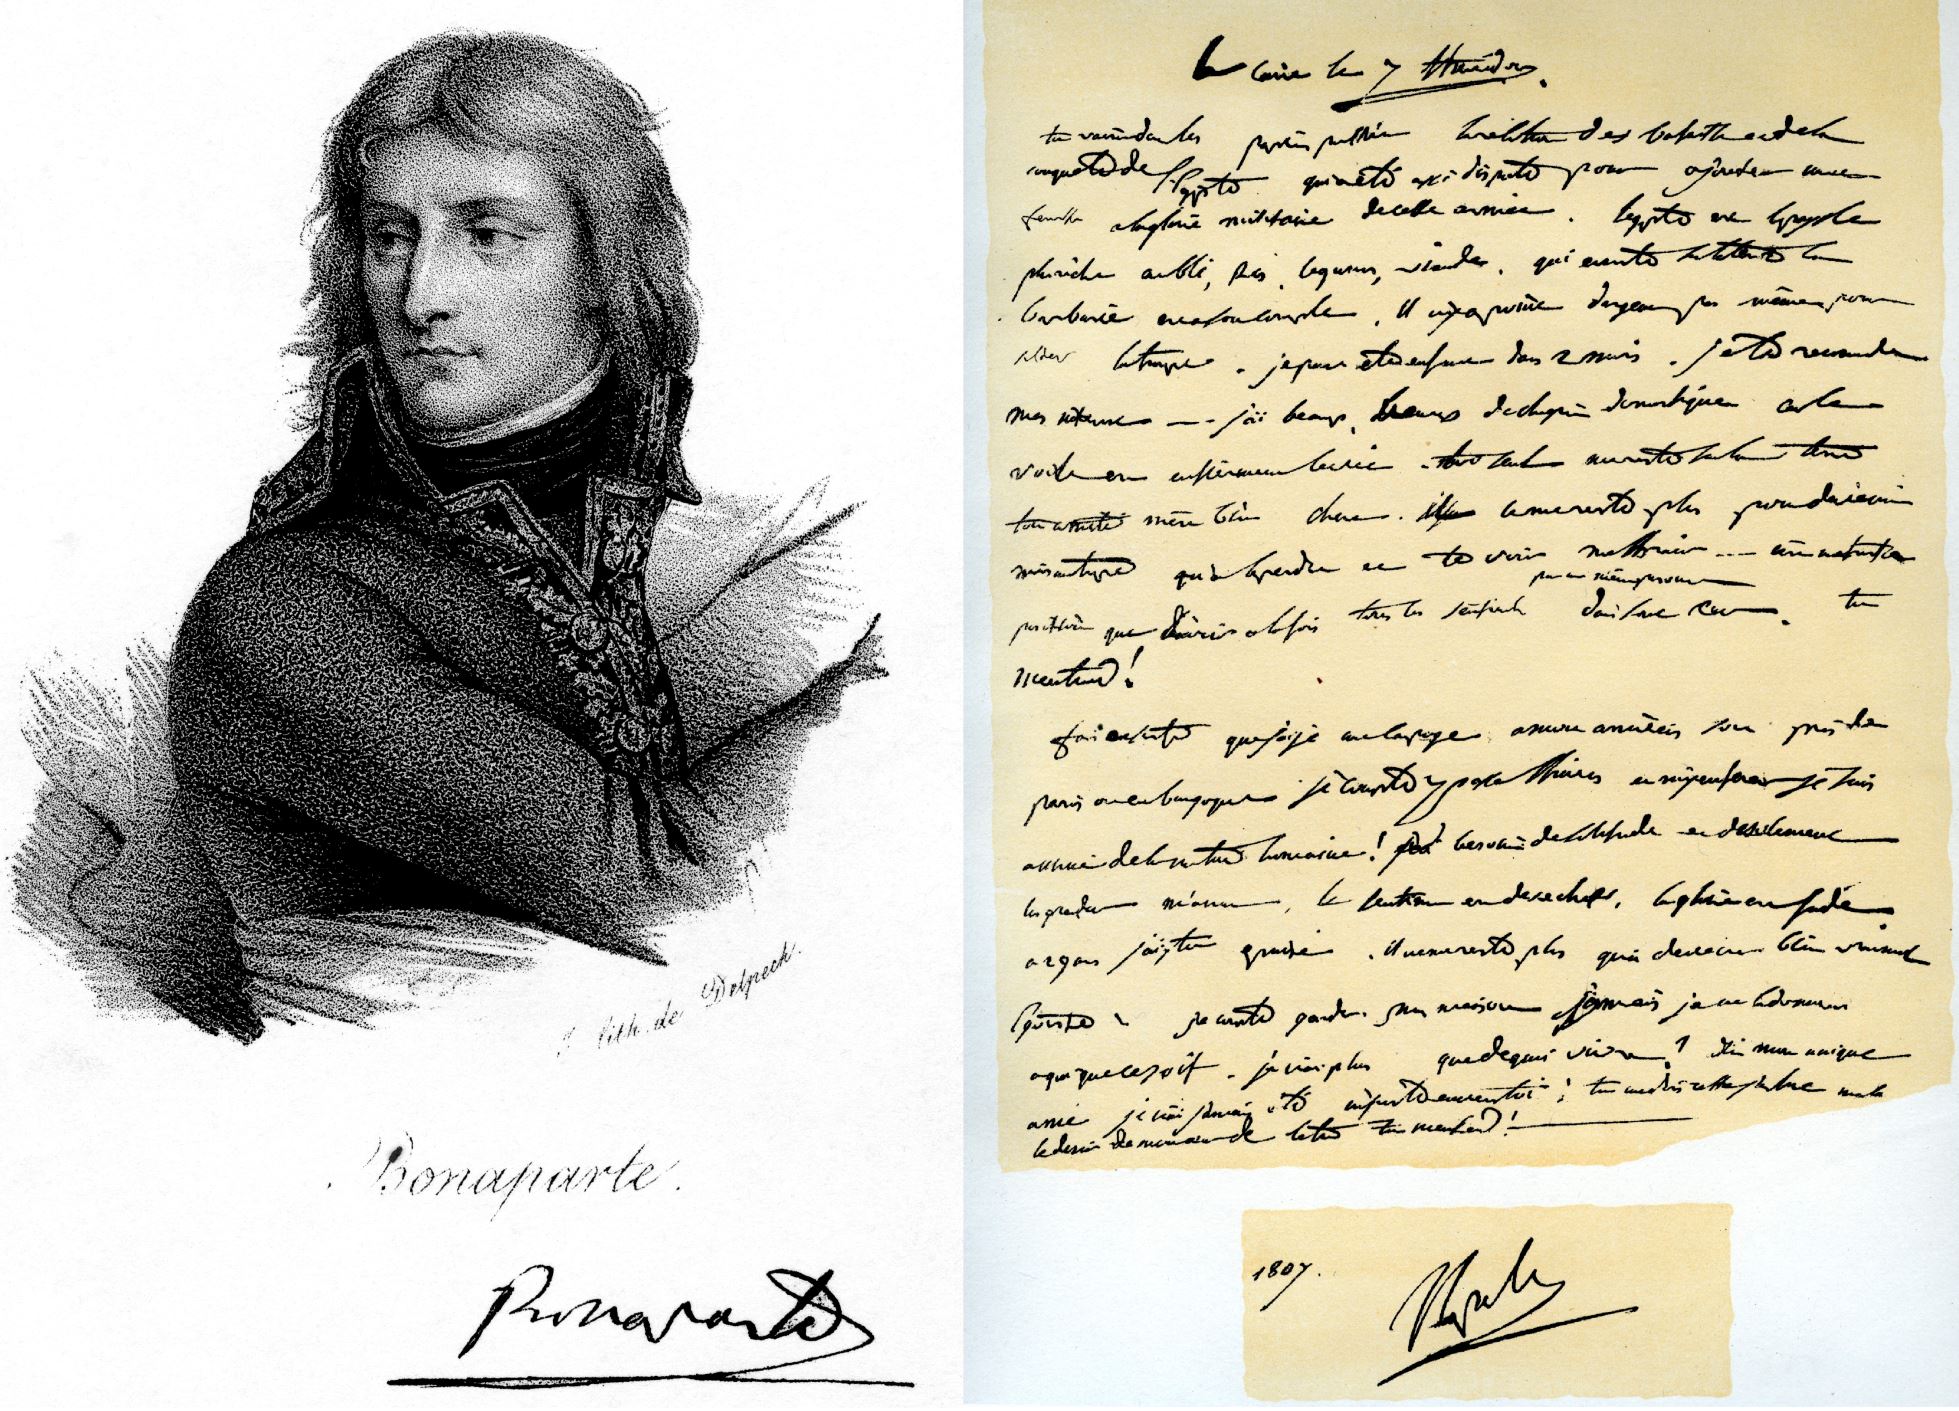 J lith. de Delpech.
Bonaparte.
Bonaparte
le Caire le 7 thermidor.
tu verra dans les papiers public la relation des batailles et de la
conquete de l'Egypte qui a été disputé pour ajouter une
feuille a la gloire militaire de cette armée. l'egypte est le pays le
plus riche en blé, ris, legumes, viandes, qui existe sur la terre la
barbarie est a son comble. Il n'y a point d'argent pas même pour
solder la troupe. je peus être en france dans 2 mois. je te recomande
mes interets — j'ai beaup, beaup de chagrin domestique car le
voile est entierement levée. toi seul me reste sur la terre
ton amitié m'est bien chere. il ne me reste plus pour devenir
misantrope qu'a te perdre et te voir me trahir --- c'est une triste
pour une même personne
position que d'avoir a la fois tous les sentiments dans un seul cœur. tu
m'entend!
fais en sorte que j'aie une campagne a mon arrivée soit près de
paris ou en bourgogne je compte y passer l'hiver et m'y enfermer je suis
annuié de la nature humaine! j'ai besoin de solitude et d'isolement
les grandeurs m'annuie, le sentiment est deseché, la gloire est fade
a 29 ans j'ai tout epuisé. il ne me reste plus qu'a devenir bien vraiment
Egoiste je compte garder ma maison jamais je ne la donnerai
a qui que ce soit. je n'ai plus que de quoi vivre! adieu mon unique
ami je n'ai jamais été injuste envers toi! tu me dois cette justice malgré
le desir de mon cœur de l'etre tu m'entend!
1807.